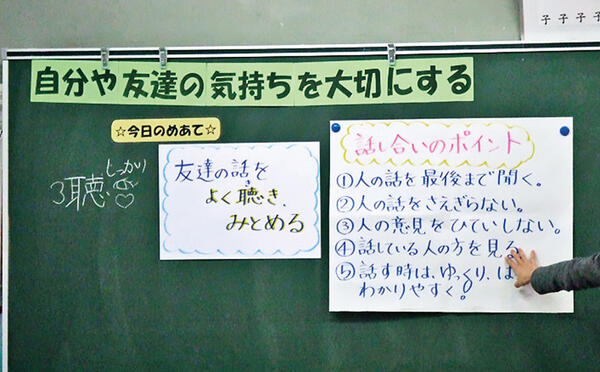 子 子 子 子
自分や友達の気持ちを大切にする
☆今日のめあて☆
しっかり
聴
友達の話を
よく聴き、
みとめる
話し合いのポイント
①人の話を最後まで聞く。
②人の話をさえぎらない。
③人の意見をひていしない。
④話している人の方を見る
⑤話す時は、ゆっくり、は
わかりやすく。